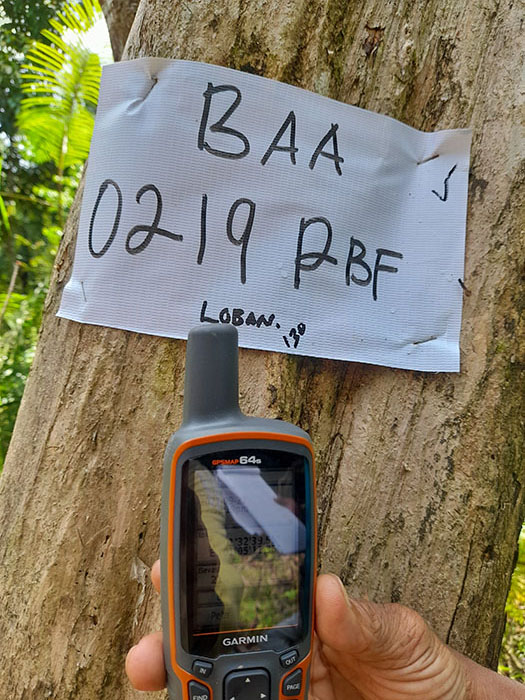 BAA
✓
0219 RBF
LOBAN.
GPSMAP 64s
GARMIN
IN
OUT
FIND
PAGE